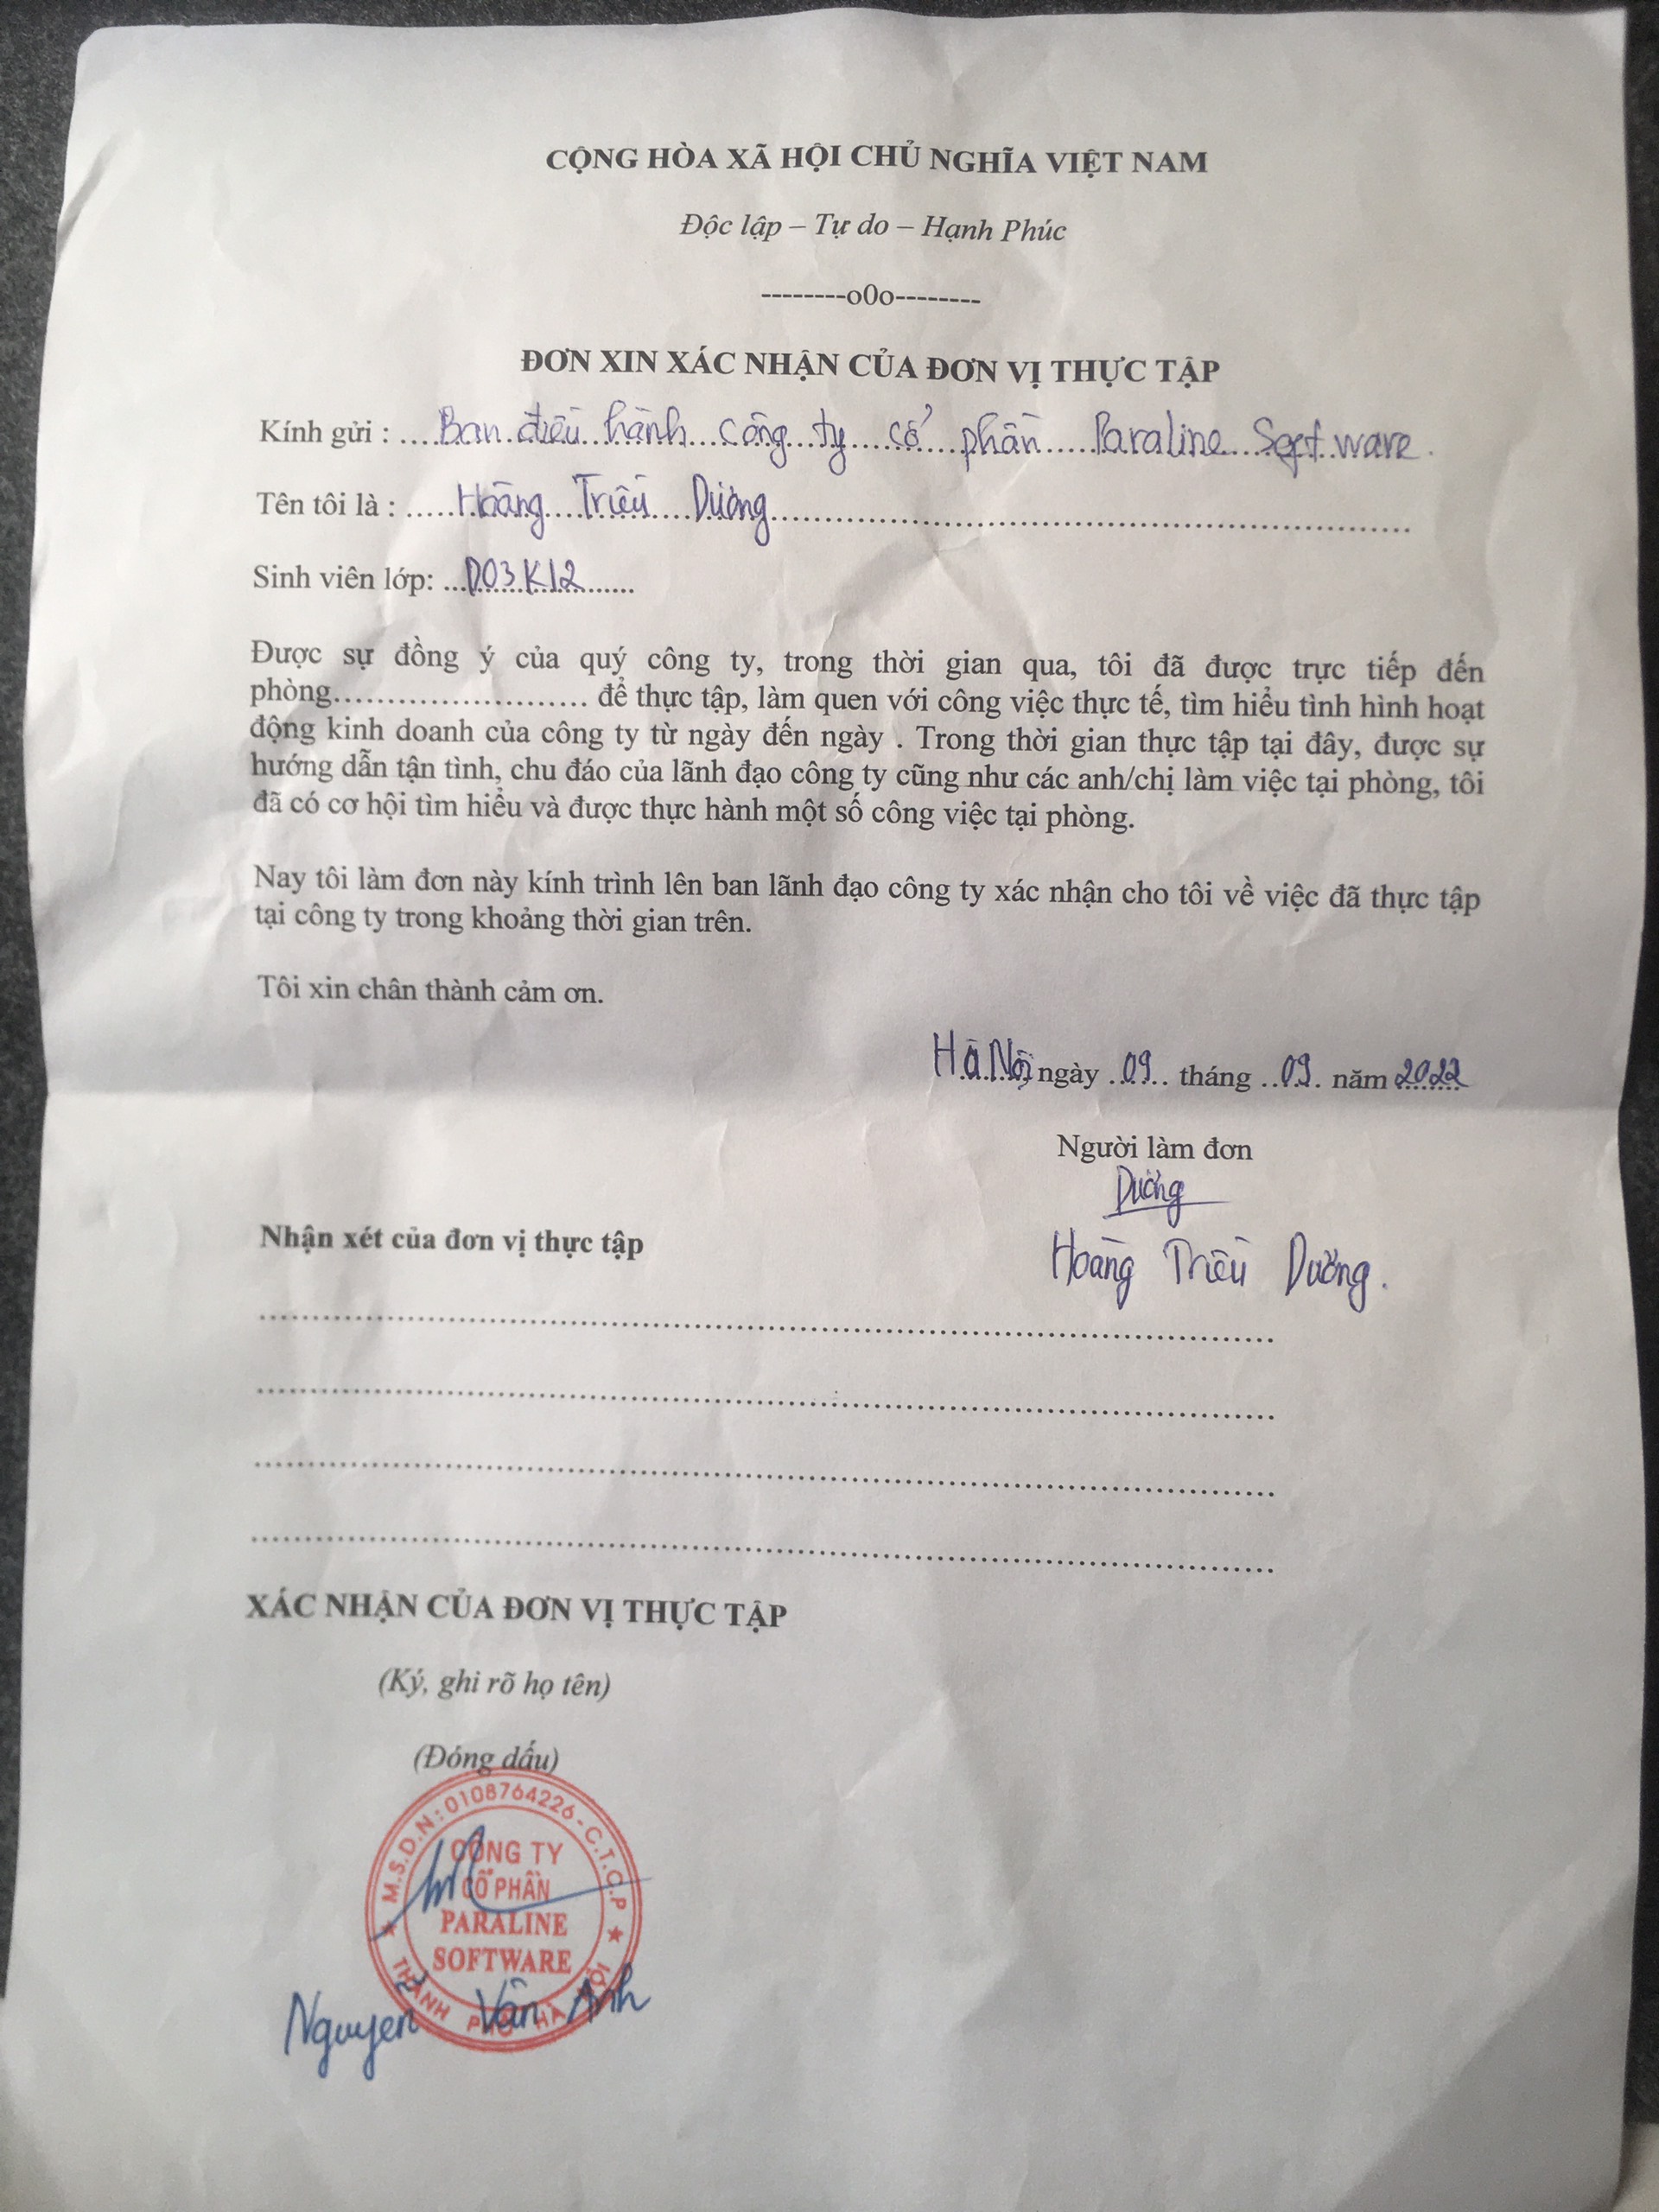 CỘNG HÒA XÃ HỘI CHỦ NGHĨA VIỆT NAM
Độc lập – Tự do – Hạnh Phúc
--------o0o--------
ĐƠN XIN XÁC NHẬN CỦA ĐƠN VỊ THỰC TẬP
Kính gửi : ....Ban điều hành công ty cổ phần Paraline Software.
Tên tôi là : .....Hoàng Triều Dương..........
Sinh viên lớp: ...D03K12......
Được sự đồng ý của quý công ty, trong thời gian qua, tôi đã được trực tiếp đến
phòng.......................... để thực tập, làm quen với công việc thực tế, tìm hiểu tình hình hoạt
động kinh doanh của công ty từ ngày đến ngày . Trong thời gian thực tập tại đây, được sự
hướng dẫn tận tình, chu đáo của lãnh đạo công ty cũng như các anh/chị làm việc tại phòng, tôi
đã có cơ hội tìm hiểu và được thực hành một số công việc tại phòng.
Nay tôi làm đơn này kính trình lên ban lãnh đạo công ty xác nhận cho tôi về việc đã thực tập
tại công ty trong khoảng thời gian trên.
Tôi xin chân thành cảm ơn.
Hà Nội ngày .09.. tháng ..09.. năm 2022
Người làm đơn
Dương
Hoàng Triều Dương.
Nhận xét của đơn vị thực tập
XÁC NHẬN CỦA ĐƠN VỊ THỰC TẬP
(Ký, ghi rõ họ tên)
(Đóng dấu)
M.S.D.N: 0108764226 - C.T.C.P
CÔNG TY
CỔ PHẦN
PARALINE
SOFTWARE
THÀNH PHỐ HÀ NỘI
Nguyễn Vân Anh